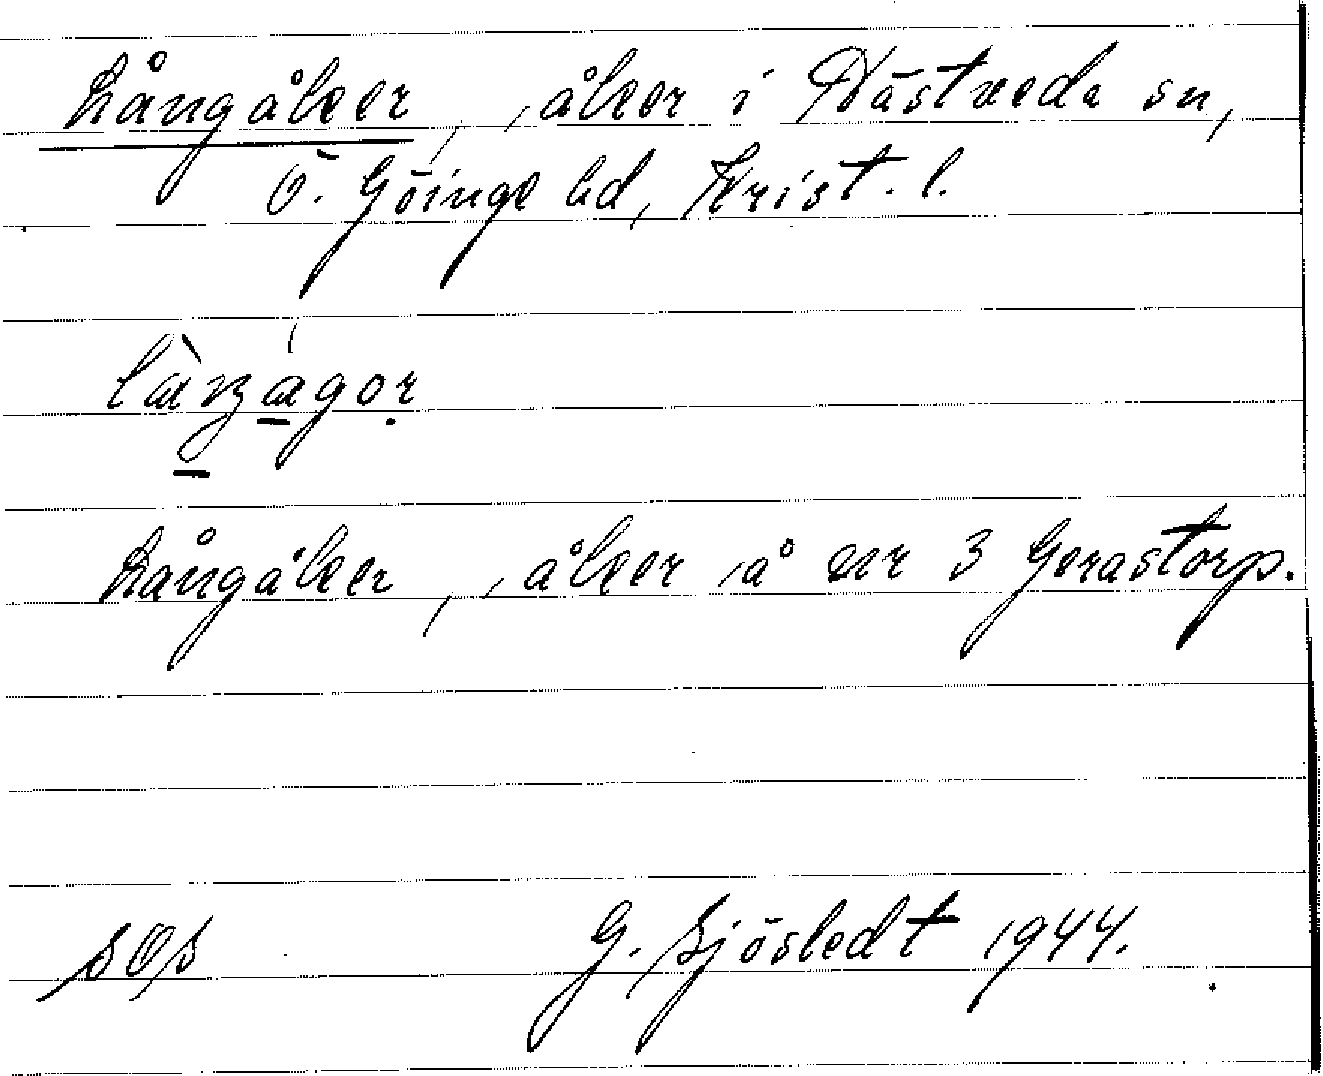 Långåker, åker i Hästveda sn,
Ö. Göinge hd, Krist. l.
Långåker, åker å nr 3 Gerastorp.
sOs G. Sjöstedt 1944.